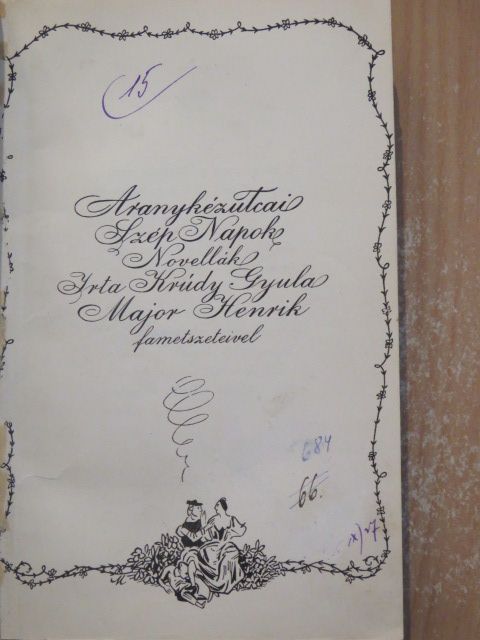 15
Aranykézutcai
Szép Napok
Novellák
Irta Krúdy Gyula
Major Henrik
fametszeteivel
684
66.
M